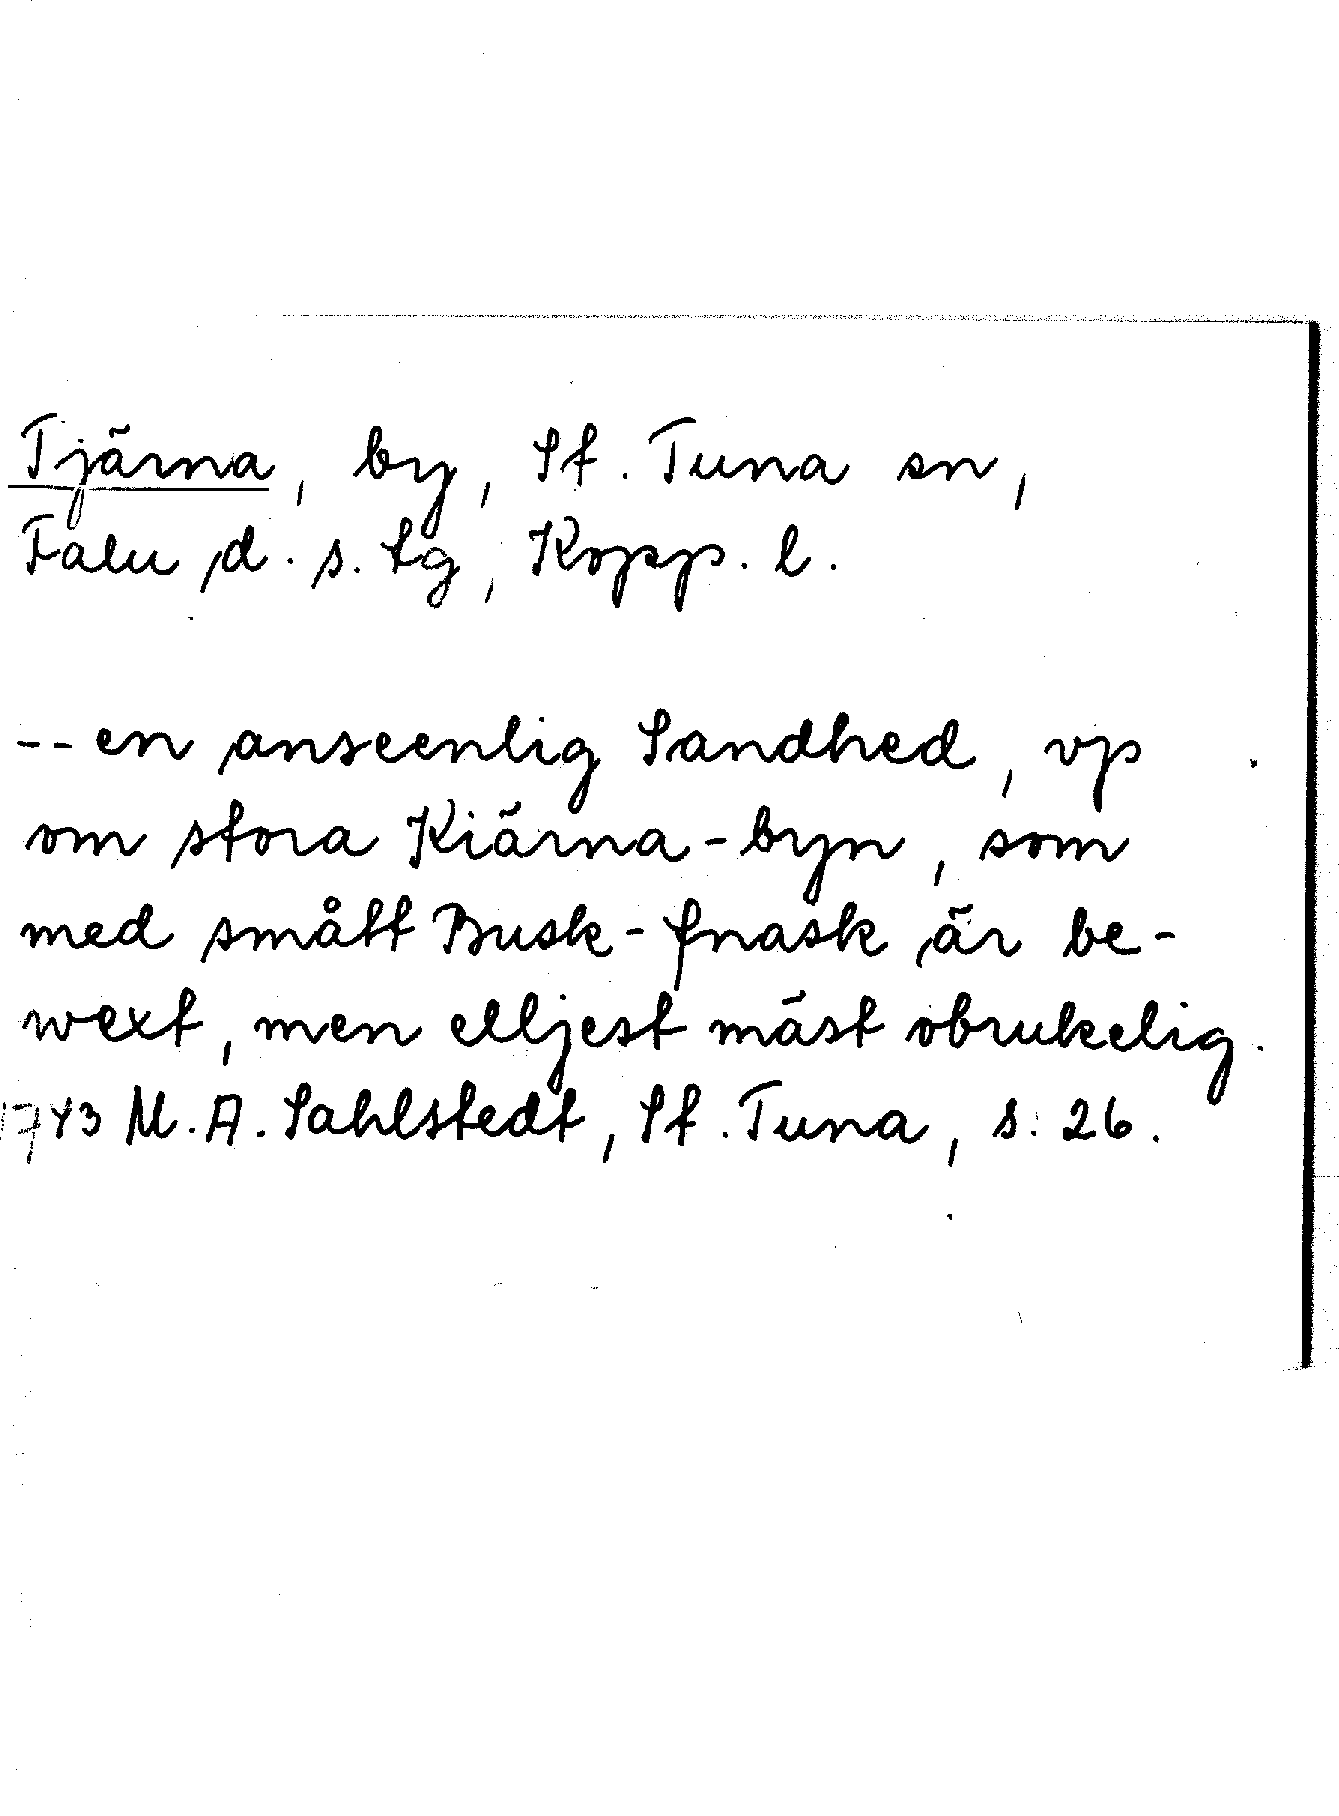 Tjärna, by, St. Tuna sn,
Falu d. s. tg, Kopp. l.
-- en anseenlig Sandhed, vp
om stora Kiärna-byn, som
med smått Busk-fnask är be-
wext, men elljest mäst obrukelig.
1743 M. A. Sahlstedt, St. Tuna, s. 26.